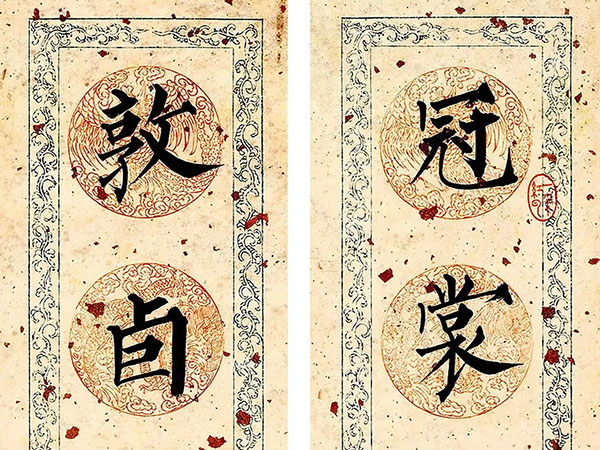 冠裳
敦卣